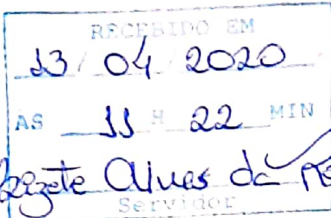 RECEBIDO EM
13 / 04 / 2020
AS 11 H 22 MIN
Alves da
Servidor